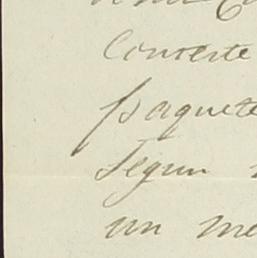 conteste
paquete
Segun
un me